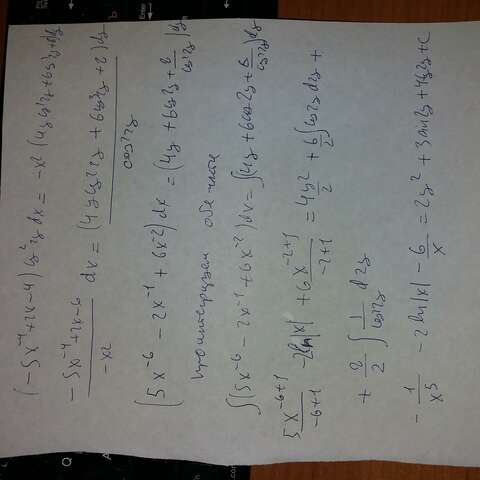 (-5x⁻⁴+2x-4) cos²2y dx = -x² (4y cos²2y+6cos³2y+2)dy
(-5x⁻⁴+2x-6)/(-x²) dx = (4y cos²2y + 6cos³2y + 2)dy/cos²2y
(5x⁻⁶ - 2x⁻¹ + 6x⁻²) dx = (4y + 6cos2y + 2/cos²2y) dy
Проинтегрируем обе части
∫(5x⁻⁶ - 2x⁻¹ + 6x⁻²) dx = ∫(4y + 6cos2y + 2/cos²2y) dy
5x⁻⁶⁺¹/(-6+1) - 2ln|x| + 6x⁻²⁺¹/(-2+1) = 4y²/2 + 6/2 ∫cos2y d2y +
+ 2/2 ∫ 1/cos²2y d2y
- 1/x⁵ - 2ln|x| - 6/x = 2y² + 3sin2y + tg2y + C